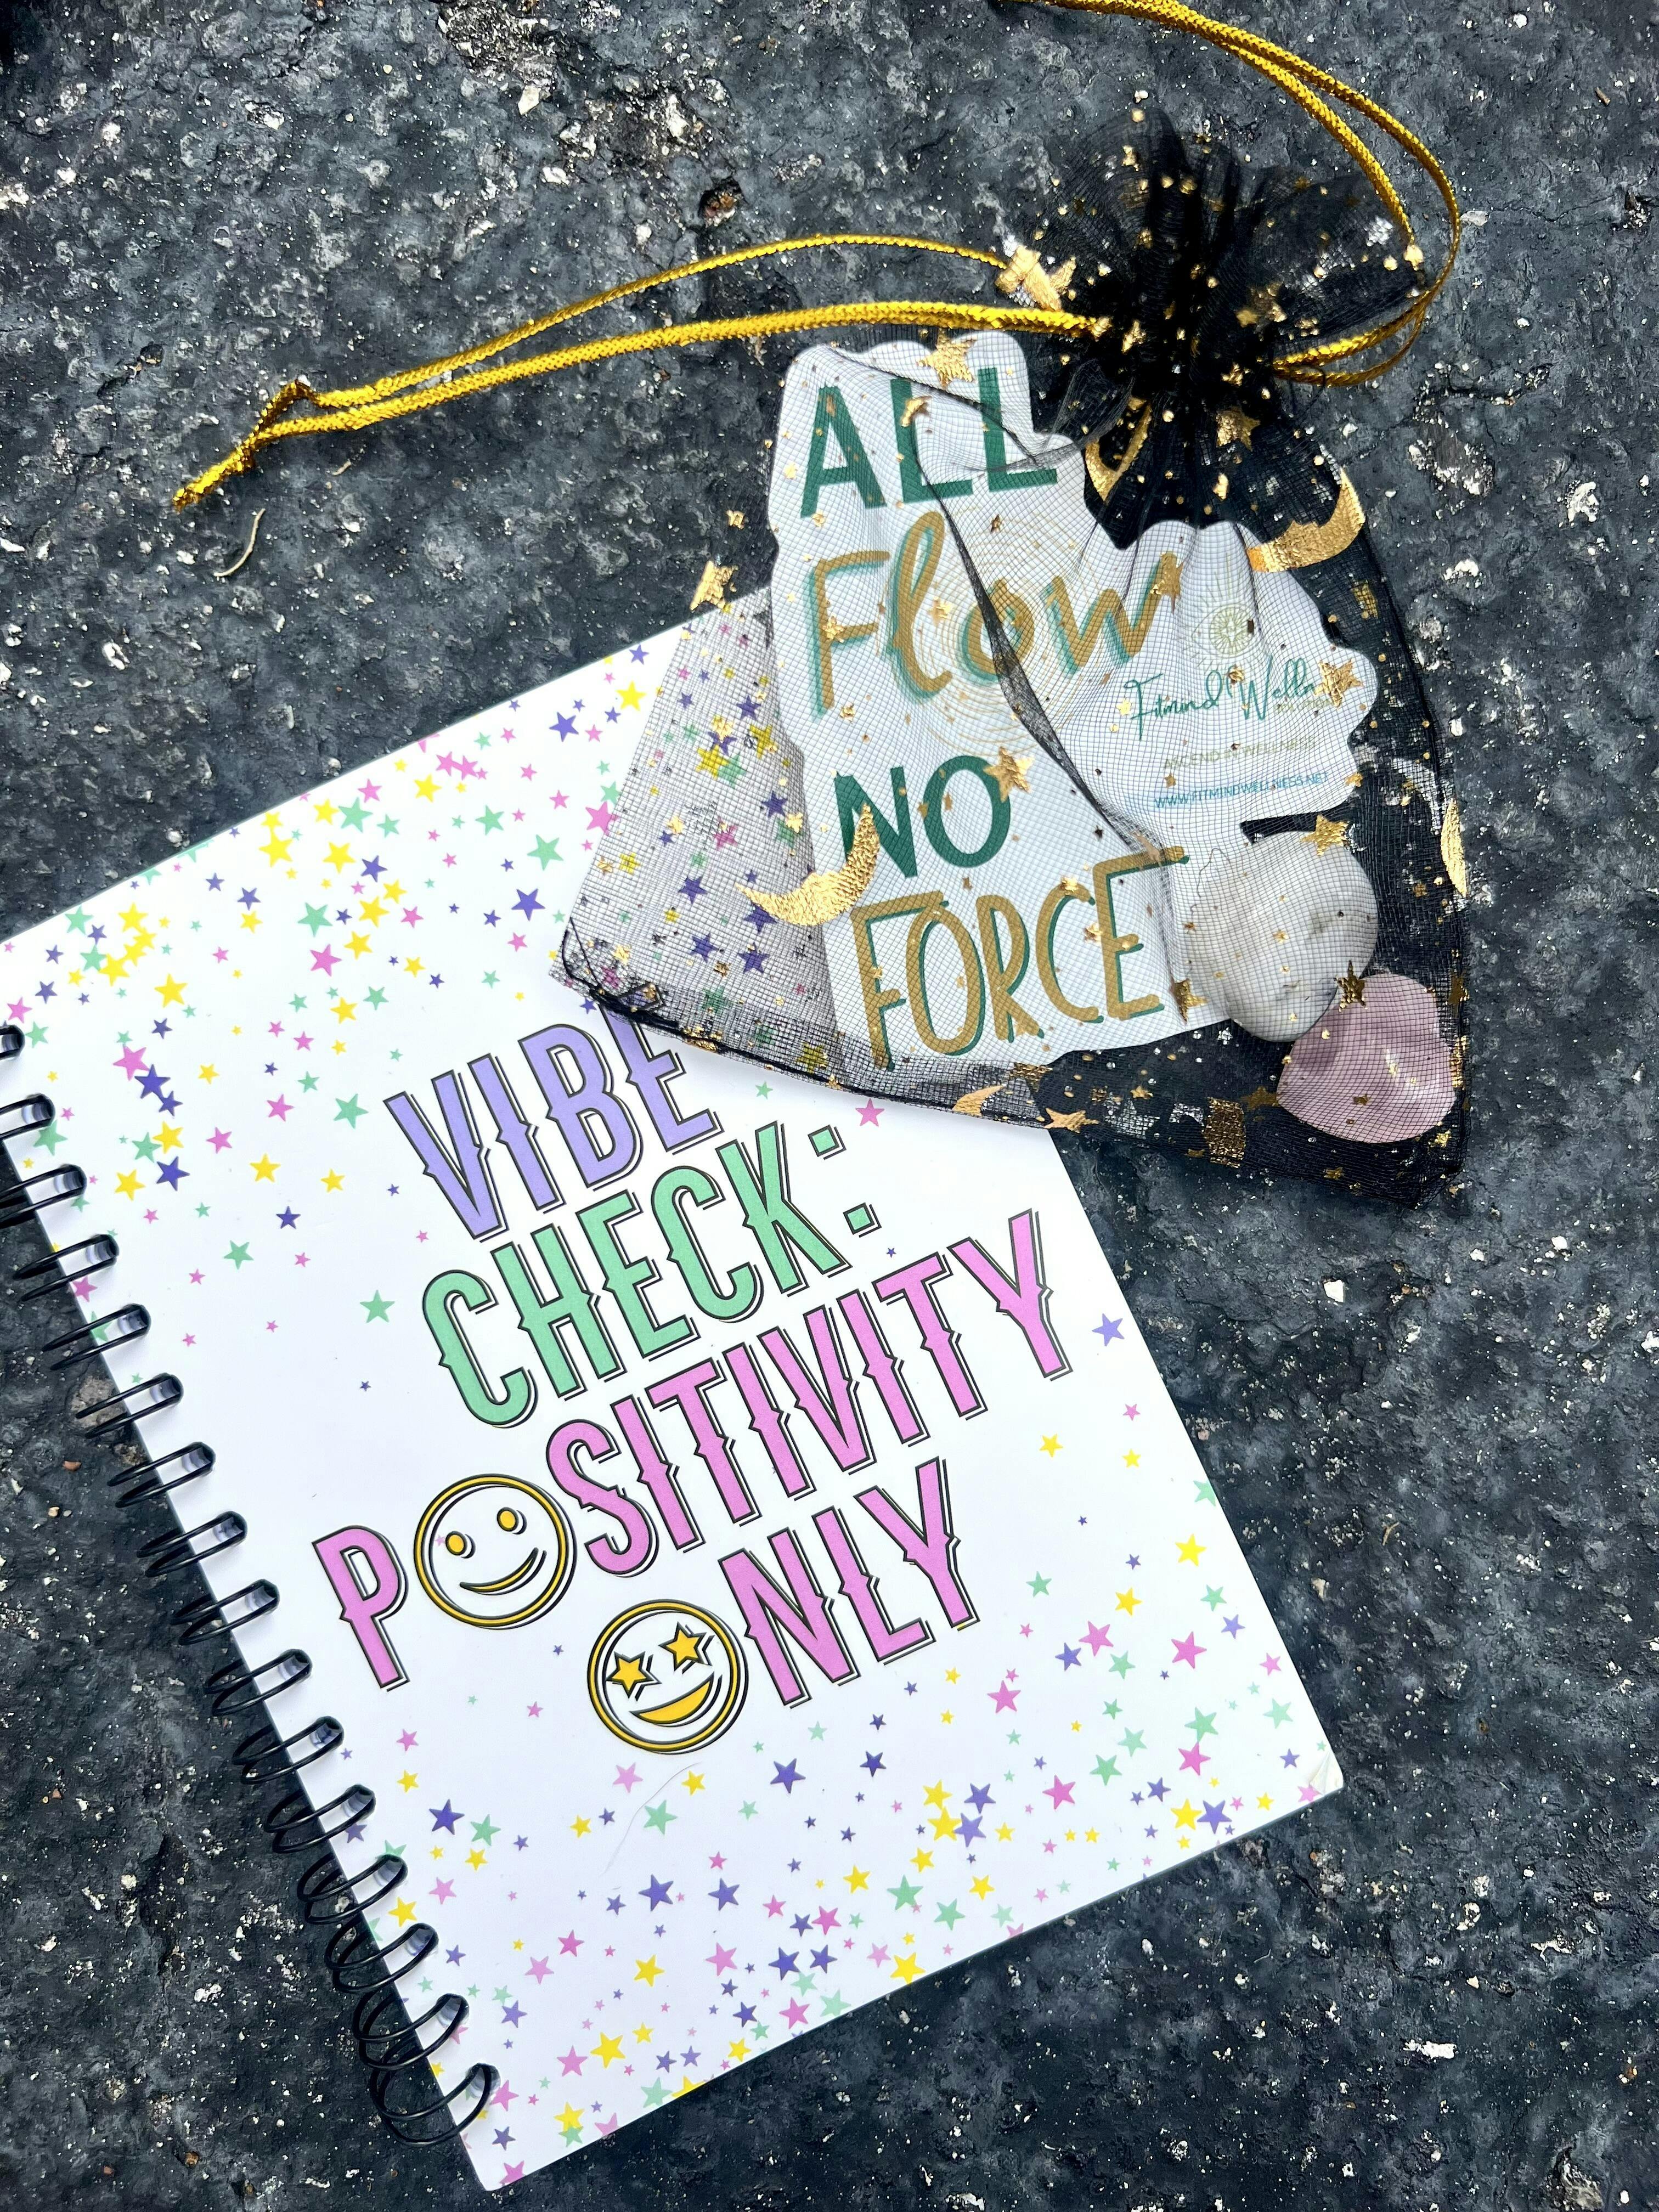 ALL
Flow
NO
FORCE
Fitmind Welln
WWW.FITMINDWELLNESS.NET
VIBE
CHECK:
POSITIVITY
ONLY